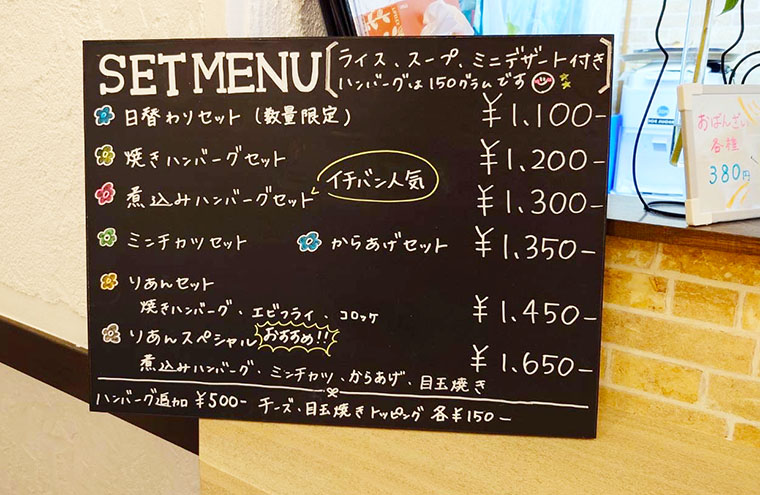 SET MENU
ライス、スープ、ミニデザート付き
ハンバーグは150グラムです
日替わりセット(数量限定) ¥1,100-
焼きハンバーグセット ¥1,200-
イチバン人気
煮込みハンバーグセット ¥1,300-
ミンチカツセット からあげセット ¥1,350-
りあんセット
焼きハンバーグ、エビフライ、コロッケ ¥1,450-
りあんスペシャル おすすめ!!
煮込みハンバーグ、ミンチカツ、からあげ、目玉焼き ¥1,650-
ハンバーグ追加 ¥500- チーズ、目玉焼きトッピング 各¥150-
おばんざい
各種
380円